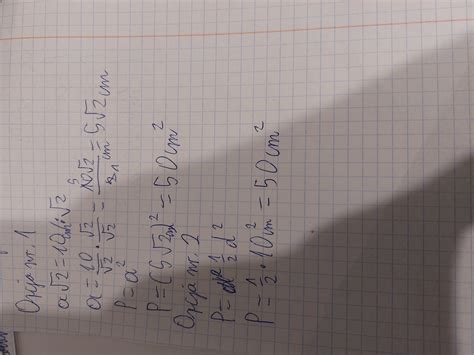 Opcja nr. 1
a√2 = 10 cm : √2
a = 10/√2 · √2/√2 = 10√2/2 cm = 5√2 cm
P = a²
P = (5√2 cm)² = 50 cm²
Opcja nr. 2
P = 1/2 d²
P = 1/2 · 10² cm = 50 cm²